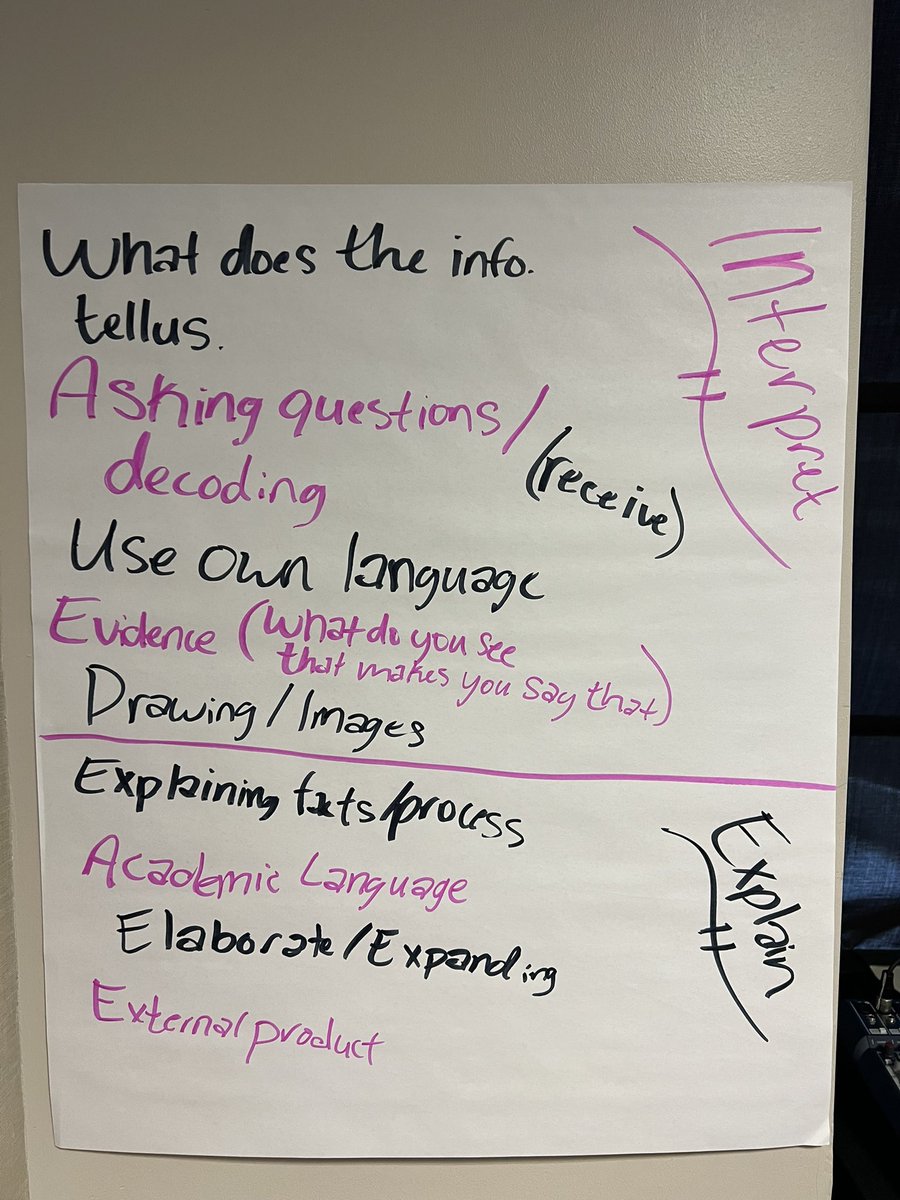 What does the info.
tell us.
Asking questions/
decoding
(receive)
Use own language
Evidence (What do you see
that makes you say that)
Drawing/Images
Interpret
Explaining facts/process
Academic Language
Elaborate/Expanding
External product
Explain